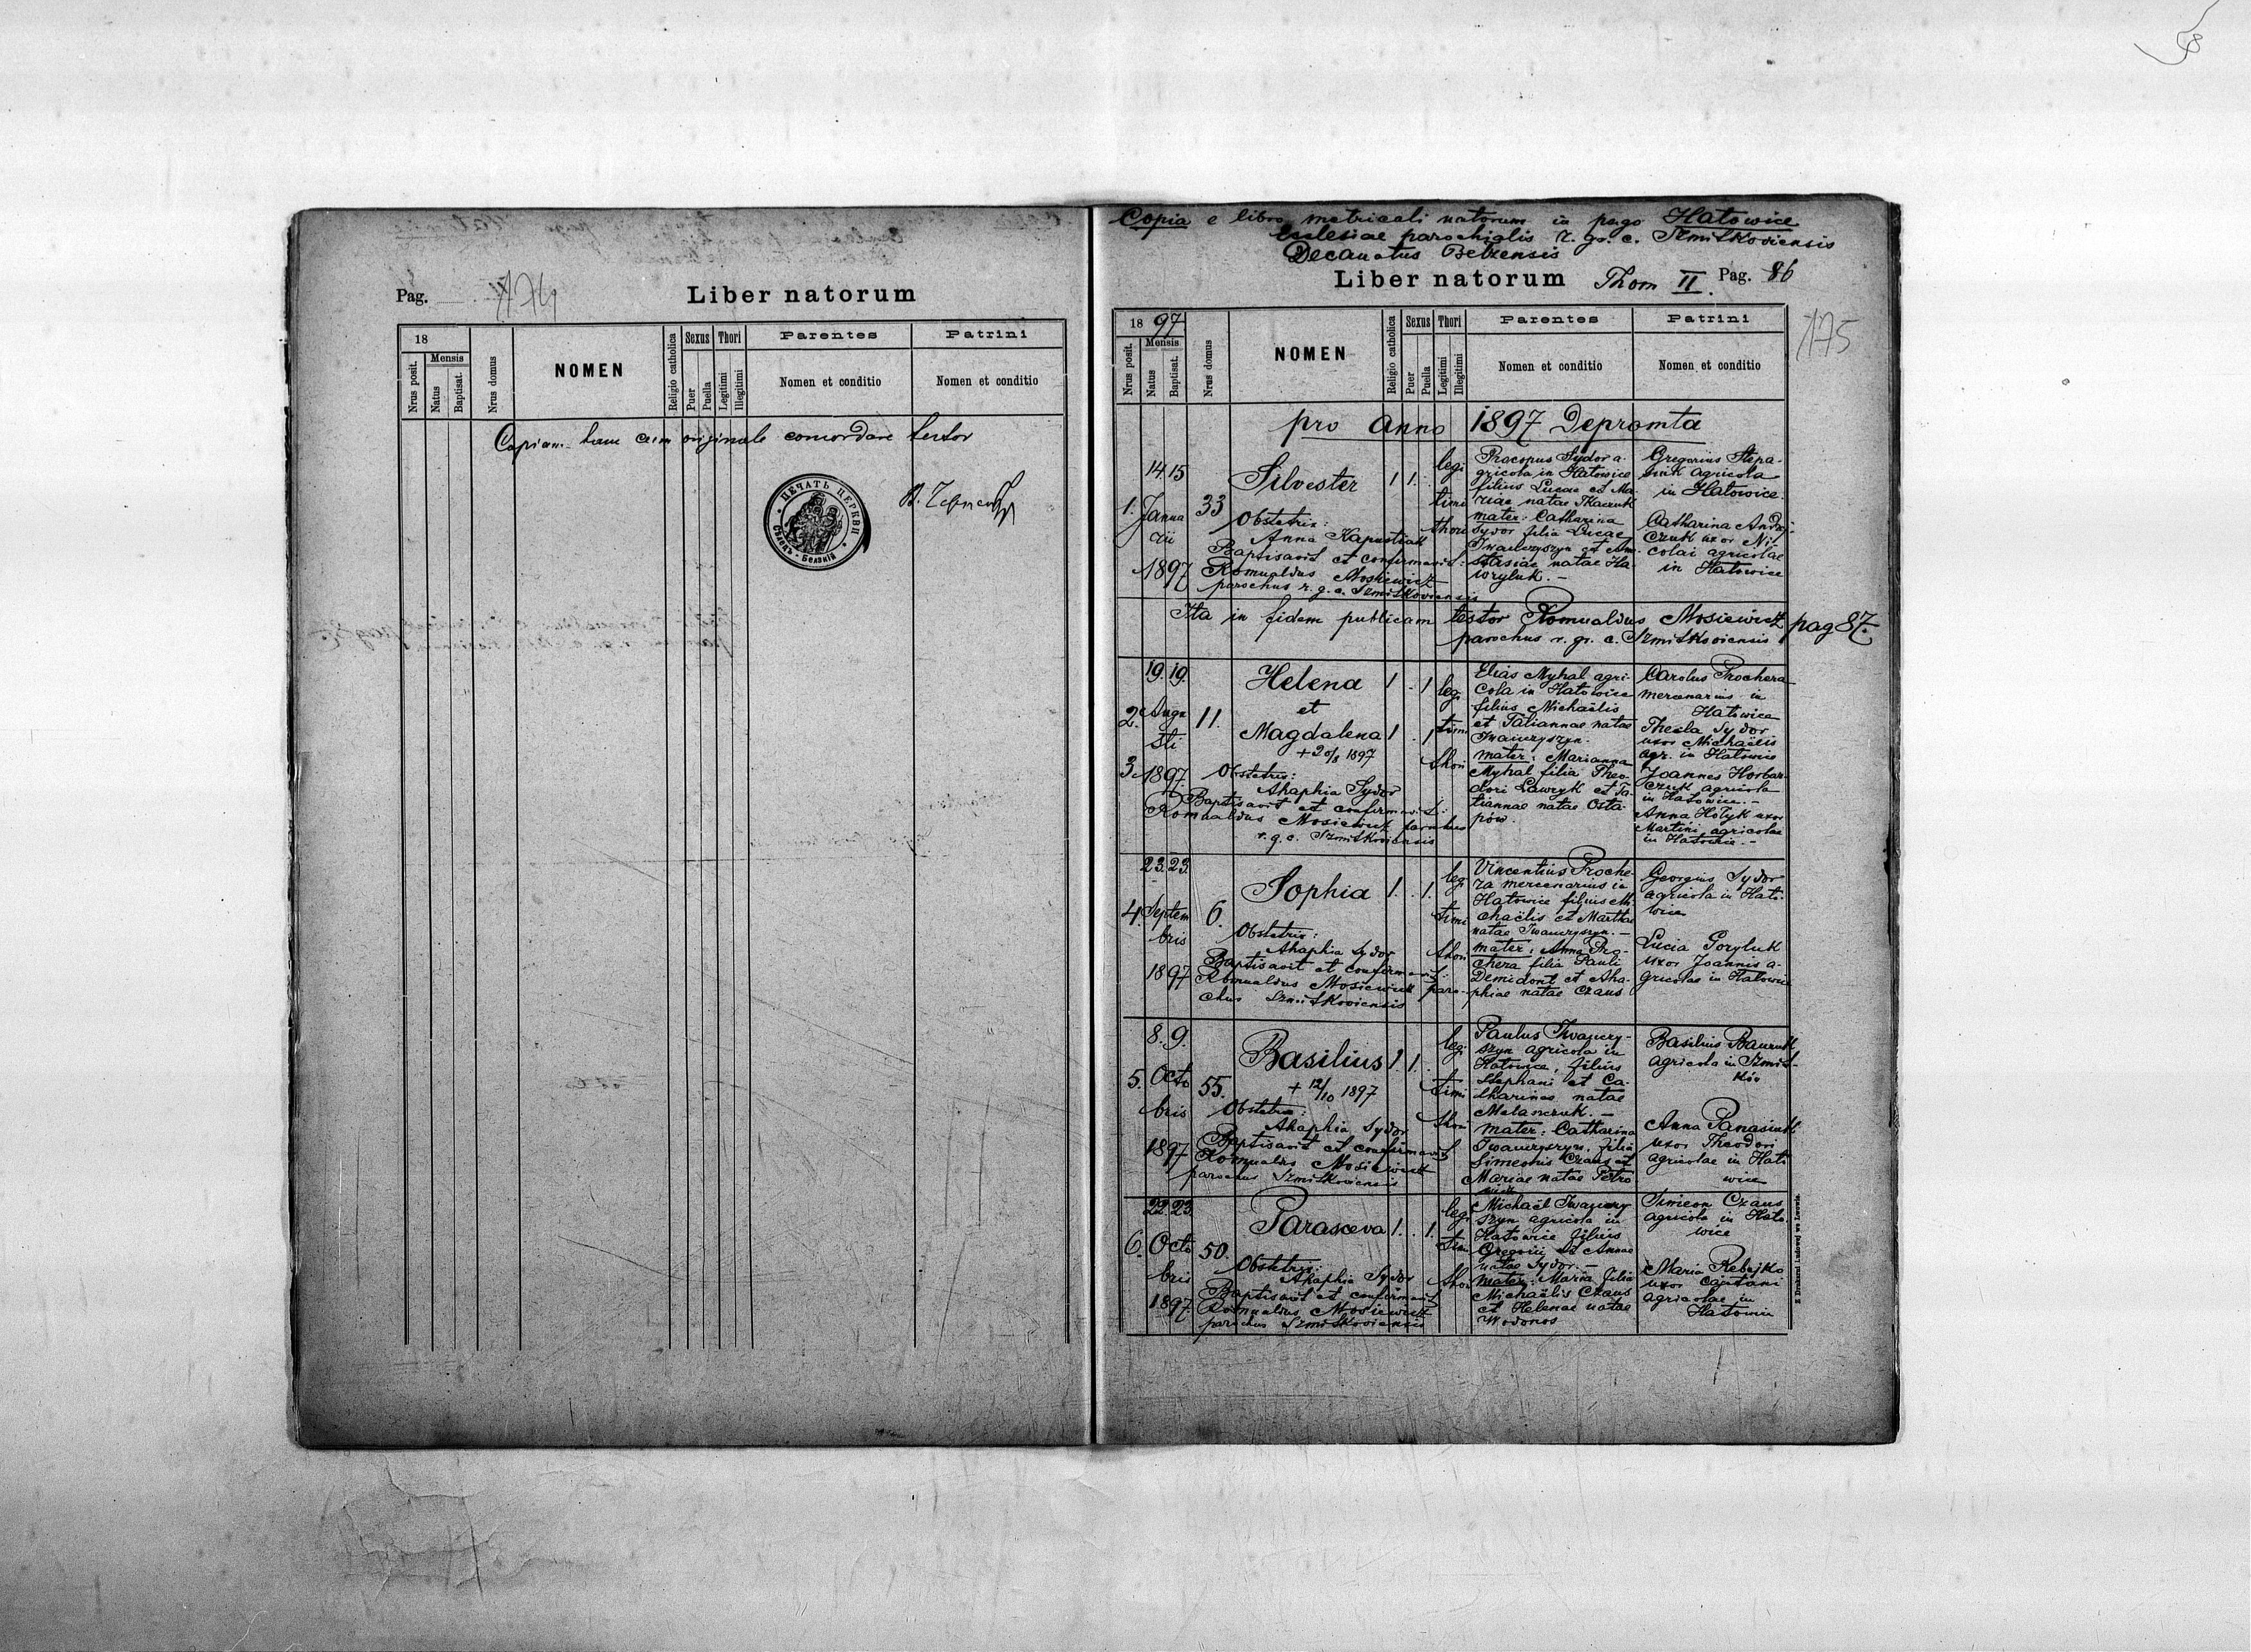 58
Pag. 174
Liber natorum
18
Nrus posit.
Mensis
Natus
Baptisat.
Nrus domus
NOMEN
Religio catholica
Sexus
Puer
Puella
Thori
Legitimi
Illegitimi
Parentes
Nomen et conditio
Patrini
Nomen et conditio
Copiam hanc cum originale concordare testor
ПЕЧАТЬ ЦЕРКВИ
Copia e libro metricali natorum in pago Hatowice
Ecclesiae parochialis r. gr. c. Szmitkoviensis
Decanatus Belzensis
Liber natorum Thom II. Pag. 86
175
18 97
Nrus posit.
Mensis
Natus
Baptisat.
Nrus domus
NOMEN
Religio catholica
Sexus
Puer
Puella
Thori
Legitimi
Illegitimi
Parentes
Nomen et conditio
Patrini
Nomen et conditio
pro anno 1897 Depromta
1.
14. 15
Janua
rii
1897
33
Silvester
Obstetrix:
Anna Kapustiak
Baptisavit et confirmavit:
Romualdus Mosiewicz
parochus r. g. c. Szmitkoviensis
1 1.
legi
timi
thori
Procopus Sydor a-
gricola in Hatowice
filius Lucae et Ma-
riae natae Tkaczuk
mater: Catharina
Sydor filia Lucae
Iwanczyszyn et Ana-
stasiae natae Ha-
wryluk. -
Gregorius Stepa-
niuk agricola
in Hatowice.
Catharina Andrij-
czuk uxor Ni-
colai agricolae
in Hatowice
Ita in fidem publicam testor Romualdus Mosiewicz
parochus r. gr. c. Szmitkoviensis
pag 87.
2.
3.
19. 19.
Augu
sti
1897.
11.
Helena
et
Magdalena
+ 20/8 1897
Obstetrix:
Ahaphia Sydor
Baptisavit et confirmavit:
Romualdus Mosiewicz parochus
r. g. c. Szmitkoviensis
1 . 1
1 . 1
legi
timi
thori
Elias Myhal agri-
cola in Hatowice
filius Michaëlis
et Tatiannae natae
Iwanczyszyn.
mater: Marianna
Myhal filia Theo-
dori Lawryk et Ta-
tiannae natae Osta-
pów.
Carolus Prochera
mercenarius in
Hatowice
Thecla Sydor
uxor Michaëlis
agr. in Hatowice
Joannes Horban-
czuk agricola
in Hatowice. -
Anna Hołyk uxor
Martini agricolae
in Hatowice. -
4.
23. 23.
Septem
bris
1897
6.
Sophia
Obstetrix:
Ahaphia Sydor
Baptisavit et confirmavit:
Romualdus Mosiewicz paro-
chus Szmitkoviensis
1. . 1.
legi
timi
thori
Vincentius Proche-
ra mercenarius in
Hatowice filius Mi-
chaëlis et Marthae
natae Iwanczyszyn. -
mater: Anna Pro-
chera filia Pauli
Demidont et Aha-
phiae natae Czaus
Georgius Sydor
agricola in Hato-
wice
Lucia Goryluk
uxor Joannis a-
gricolae in Hatowice
5.
8. 9.
Octo
bris
1897
55.
Basilius
+ 12/10 1897
Obstetrix:
Ahaphia Sydor
Baptisavit et confirmavit
Romualdus Mosiewicz
parochus Szmitkoviensis
1 1.
legi
timi
thori
Paulus Iwanczy-
szyn agricola in
Hatowice, filius
Stephani et Ca-
tharinae natae
Melanczuk. -
mater: Catharina
Iwanczyszyn, filia
Simeonis Czaus et
Mariae natae Petro
Basilius
agricola in Szmit-
ków
Anna Panasiuk
uxor Theodori
agricolae in Hato
wice
6.
22. 23.
Octo
bris
1897.
50.
Parasceva
Obstetrix:
Ahaphia Sydor
Baptisavit et confirmavit
Romualdus Mosiewicz
parochus Szmitkoviensis
1. . 1.
legi
timi
thori
Michaël Iwanczy
szyn agricola in
Hatowice filius
Gregorii et Annae
natae Sydor. -
mater: Maria filia
Michaëlis Czaus
et Helenae natae
Wodonos
Simeon Czaus
agricola in Hato
wice
Maria Rebejko
uxor Cajetani
agricolae in
Hatowice
Z Drukarni Ludowej we Lwowie.